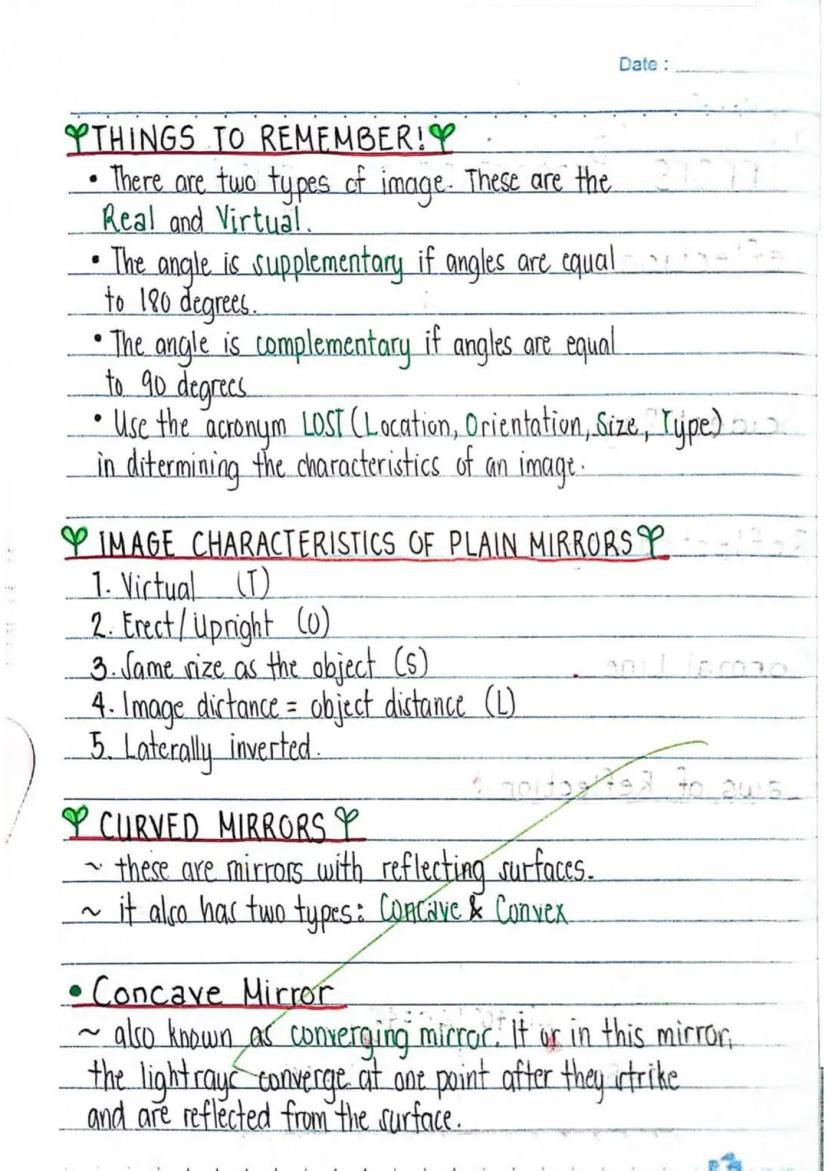 Date :
THINGS TO REMEMBER!
• There are two types of image. These are the
Real and Virtual.
• The angle is supplementary if angles are equal
to 180 degrees.
• The angle is complementary if angles are equal
to 90 degrees
• Use the acronym LOST (Location, Orientation, Size, Type)
in ditermining the characteristics of an image.
IMAGE CHARACTERISTICS OF PLAIN MIRRORS
1. Virtual (T)
2. Erect/Upright (O)
3. Same size as the object (S)
4. Image distance = object distance (L)
5. Laterally inverted.
CURVED MIRRORS
~ these are mirrors with reflecting surfaces.
~ it also has two types: Concave & Convex
• Concave Mirror
~ also known as converging mirror. It is in this mirror,
the light rays converge at one point after they strike
and are reflected from the surface.